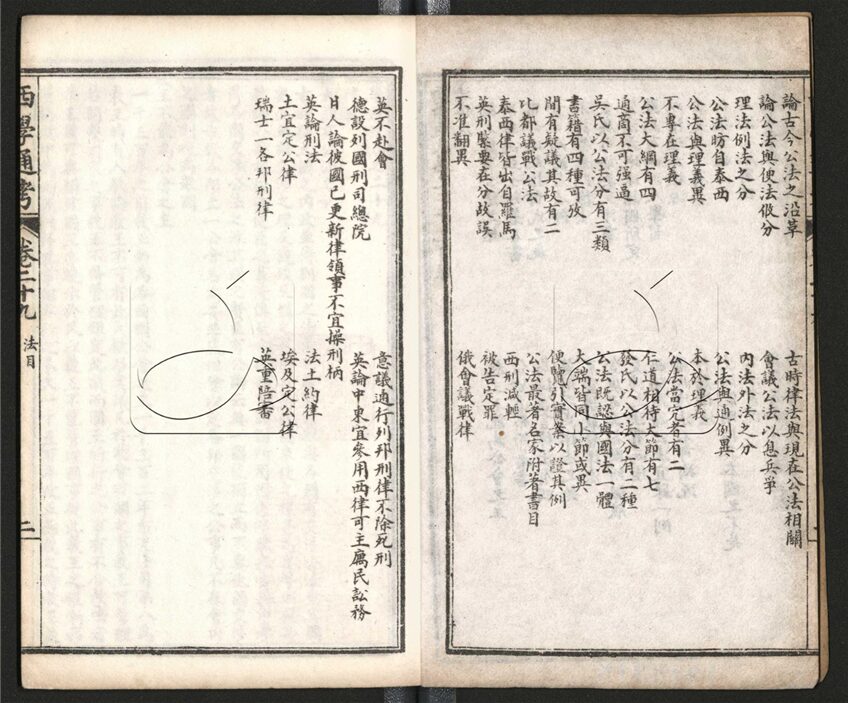 論古今公法之沿革
古時律法與現在公法相關
論公法與使法假分
會議公法以息兵爭
理法例法之分
內法外法之分
公法昉自泰西
公法與通例異
公法與理義異
本於理義
不專在理義
公法當究者有二
公法大綱有四
仁道相待大節有七
通商不可強逼
發氏以公法分有二種
吳氏以公法分有三類
公法既認與國法一體
書籍有四種可攷
大端皆同小節或異
間有疑議其故有二
便覽引實案以證其例
比都議戰公法
公法最著名家附著書目
泰西律皆出自羅馬
西刑減輕
英刑裝要在分故誤
被告定罪
不准翻異
俄會議戰律
英不赴會
意議通行列邦刑律不除死刑
德設列國刑司總院
英論中東宜參用西律可主屬民訟務
日人論彼國已更新律領事不宜操刑柄
英論刑法
法土約律
土宜定公律
埃及定公律
瑞士一各邦刑律
英重陪審
西學通考
卷二十九
法目
二